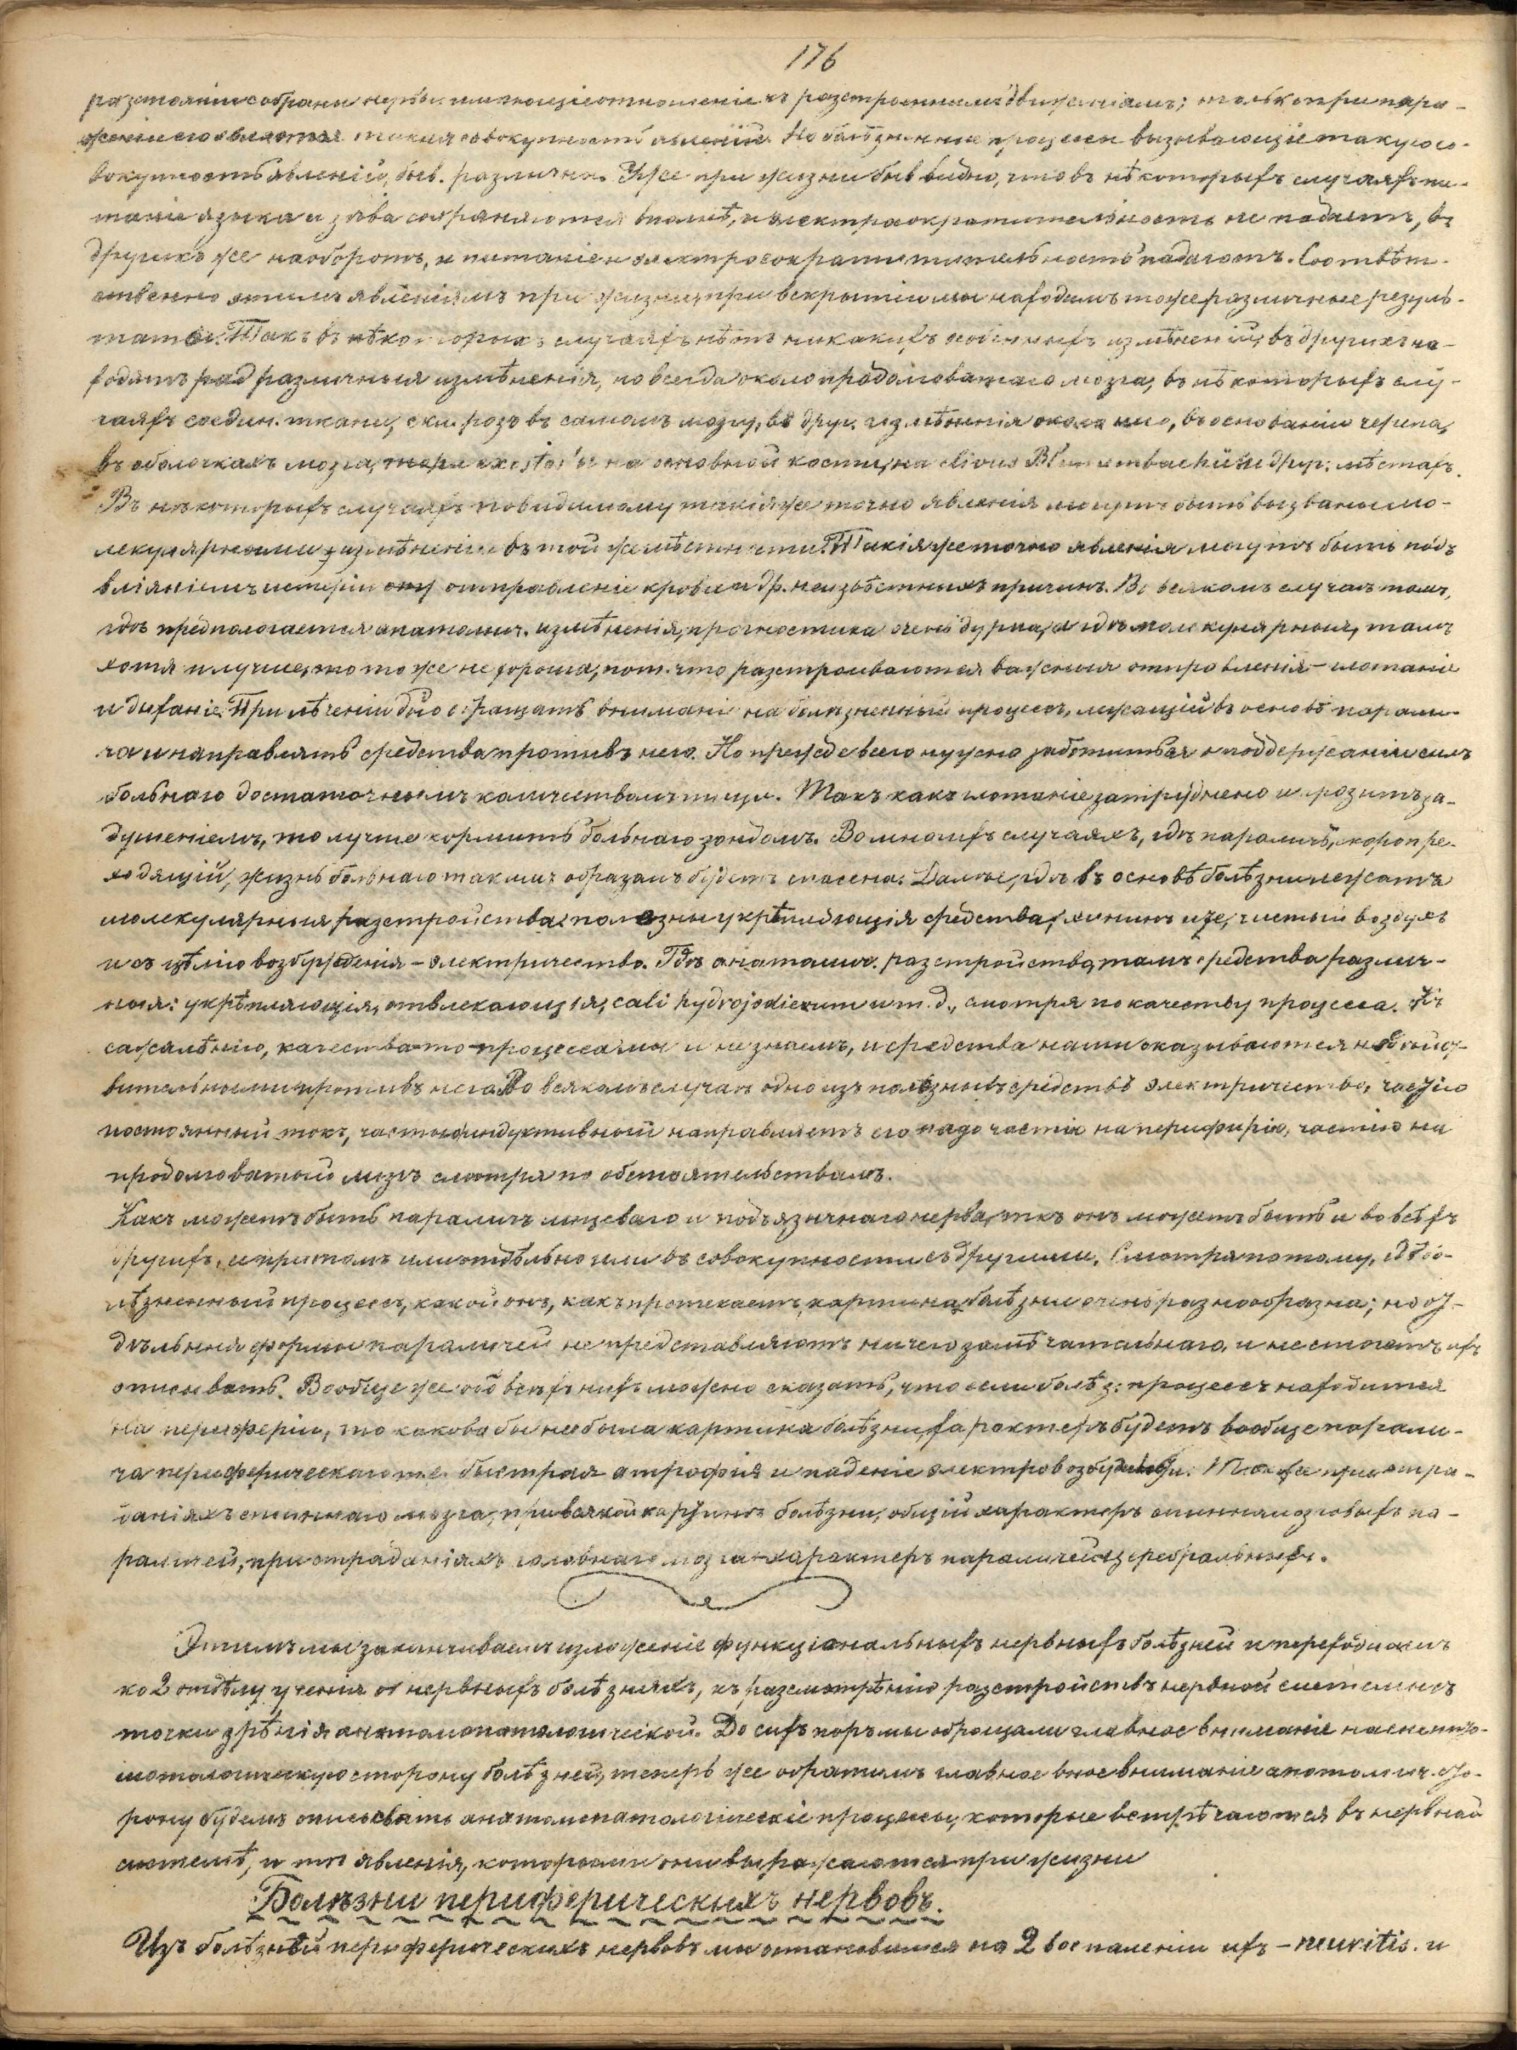 176
разстоянии собраны нервы имеющіе отношеніе къ разстроеннымъ движеніямъ; только при пора-
женіи его является такая совокупность явленій. Но болѣзненные процессы вызывающіе такую со-
вокупность явленій, быв. различны. Уже при жизни быв. видно, что въ нѣкоторыхъ случаяхъ пи-
таніе языка и зѣва сохраняются вполнѣ, и электросократительность не падаетъ, въ
другихъ же наоборотъ, и питаніе и электросократительность падаютъ. Соотвѣт-
ственно этимъ явленіямъ при жизни, при вскрытіи мы находимъ тоже различные резуль-
таты. Такъ въ нѣкоторыхъ случаяхъ нѣтъ никакихъ измѣненій, въ другихъ на-
ходятъ ряд различныя измѣненія, но всегда около продолговатаго мозга, въ нѣкоторыхъ слу-
чаяхъ соедин. ткани, склерозъ въ самомъ мозгу, въ друг. измѣненія около него, въ основаніи черепа,
въ оболочкахъ мозга, напр. exostos'ы на основной кости, на clivus Blumenbachii и друг. мѣстахъ.
Въ нѣкоторыхъ случаяхъ повидимому такія же точно явленія могутъ быть вызваны мо-
лекулярными измѣненіями въ той же мѣстности. Такія же точно явленія могутъ быть подъ
вліяніемъ истеріи отправленіе крови и др. неизвѣстныхъ причинъ. Во всякомъ случаѣ тамъ,
гдѣ предполагается анатомич. измѣненія, прогностика очень дурна, а гдѣ молекулярныя, тамъ
хотя и лучше, но тоже не хороша, пот. что разстроиваются важныя отправленія – глотаніе
и дыханіе. При лѣченіи обращать вниманіе на болѣзненный процессъ, лежащій въ основѣ парали-
ча и направлять средства противъ него. Но прежде всего нужно заботиться о поддержаніи силъ
больнаго достаточнымъ количествомъ пищи. Такъ какъ глотаніе затруднено и грозитъ за-
душеніемъ, то лучше кормить больнаго зондомъ. Во многихъ случаяхъ, гдѣ параличъ, скоропре-
ходящій, жизнь больнаго такимъ образомъ будетъ спасена. Далѣе, гдѣ въ основѣ болѣзни лежатъ
молекулярныя разстройства, полезны укрѣпляющія средства, хининъ и fe, чистый воздухъ
и съ цѣлію возбужденія – электричество. Гдѣ анатомич. разстройства, тамъ средства различ-
ныя: укрѣпляющія, отвлекающія, cali hydrojodicum и т. д., смотря по качеству процесса. Къ
сожалѣнію, качества-то процесса мы и не знаемъ, и средства наши оказываются недѣйст-
вительными противъ него. Во всякомъ случаѣ одно изъ полезныхъ средствъ электричество, частію
постоянный токъ, частію индуктивный направлять его надо частію на периферію, частію на
продолговатый мозгъ смотря по обстоятельствамъ.
Какъ можетъ быть параличъ лицеваго и подъязычнаго нерва, такъ онъ можетъ быть и во всѣхъ
другихъ, и притомъ или отдѣльно или въ совокупности съ другими. Смотря потому, гдѣ бо-
лѣзненный процессъ, какой онъ, какъ протекаетъ, картина болѣзни очень разнообразна; но от-
дѣльныя формы параличей не представляютъ ничего замѣчательнаго, и не стоитъ ихъ
описывать. Вообще же обо всѣхъ нихъ можно сказать, что если болѣз: процессъ находится
на периферіи, то какова бы не была картина болѣзни характеръ будетъ вообще парали-
ча периферическаго т.е. быстрая атрофія и паденіе электровозбудимости. при стра-
даніяхъ спиннаго мозга, при всякой картинѣ болѣзни, общій характеръ спинномозговыхъ па-
раличей, при страданіяхъ головнаго мозга – характеръ параличей церебральныхъ.
Этимъ мы заканчиваемъ изложеніе функціональныхъ нервныхъ болѣзней и переходимъ
ко 2 отдѣлу ученія о нервныхъ болѣзняхъ, къ разсмотрѣнію разстройствъ нервной системы съ
точки зрѣнія анатомопатологической. До сихъ поръ мы обращали главное вниманіе на симпто-
матологическую сторону болѣзней, теперь же обратимъ главное вниманіе анатомич. сто-
рону будемъ описывать анатомопатологическіе процессы, которые встрѣчаются въ нервной
системѣ, и тѣ явленія, которыми они выражаются при жизни
Болѣзни периферическихъ нервовъ.
Изъ болѣзней периферическихъ нервовъ мы остановимся на 2 воспаленіи ихъ – neuritis. и